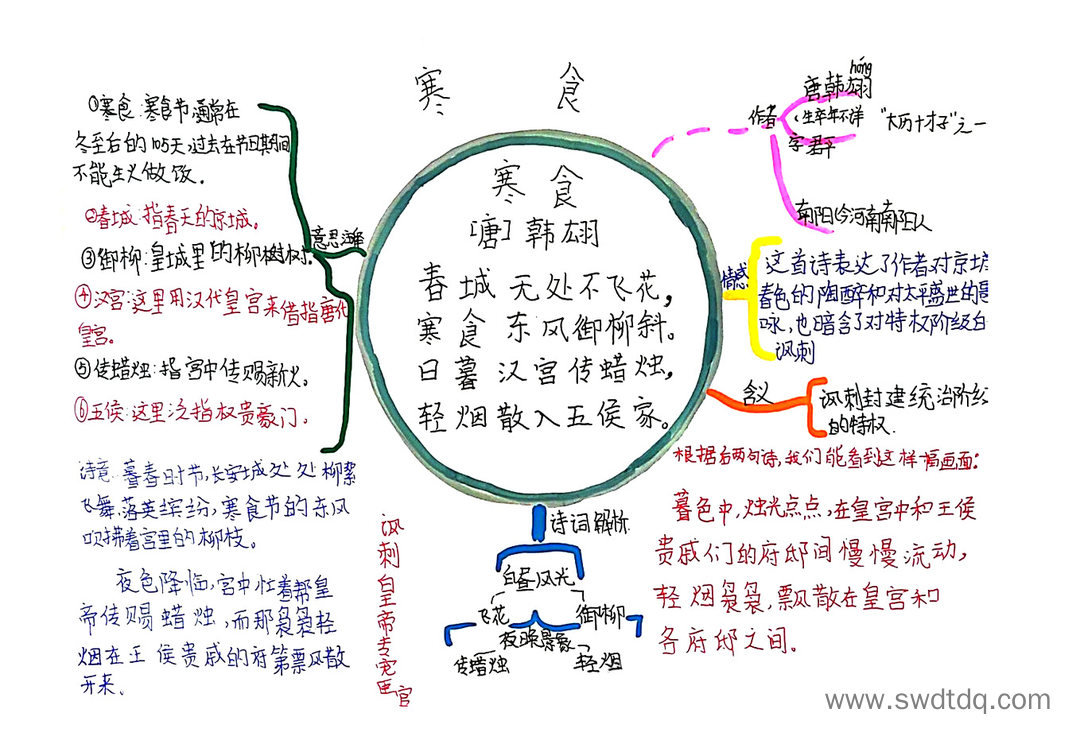 寒 食
①寒食:寒食节通常在
冬至后的105天,过去在节日期间
不能生火做饭.
②春城:指春天的京城。
③御柳:皇城里的柳树.
④汉宫:这里用汉代皇宫来借指唐代
皇宫。
⑤传蜡烛:指宫中传赐新火。
⑥五侯:这里泛指权贵豪门。
意思注释
诗意:暮春时节,长安城处处柳絮
飞舞,落英缤纷,寒食节的东风
吹拂着宫里的柳枝。
夜色降临,宫中忙着帮皇
帝传赐蜡烛,而那袅袅轻
烟在王侯贵戚的府第飘风散
开来.
寒 食
[唐]韩翃
春城无处不飞花,
寒食东风御柳斜。
日暮汉宫传蜡烛,
轻烟散入五侯家。
讽刺皇帝专宠
宦官
诗词解析
白昼风光
飞花
御柳
夜晚景象
传蜡烛
轻烟
作者
hóng
唐韩翃
生卒年不详
"大历十才子"之一
字君平
南阳(今河南南阳)人
情感
这首诗表达了作者对京城
春色的陶醉和对太平盛世的
咏,也暗含了对特权阶级的
讽刺
含义
讽刺封建统治阶级
的特权.
根据后两句诗,我们能看到这样幅画面:
暮色中,烛光点点,在皇宫中和王侯
贵戚们的府邸间慢慢流动,
轻烟袅袅,飘散在皇宫和
各府邸之间.
www.swdtdq.com